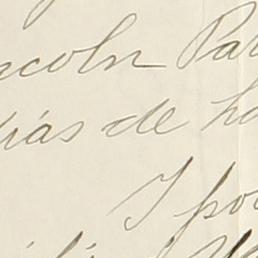 ncoln Par
ias de ha
I po